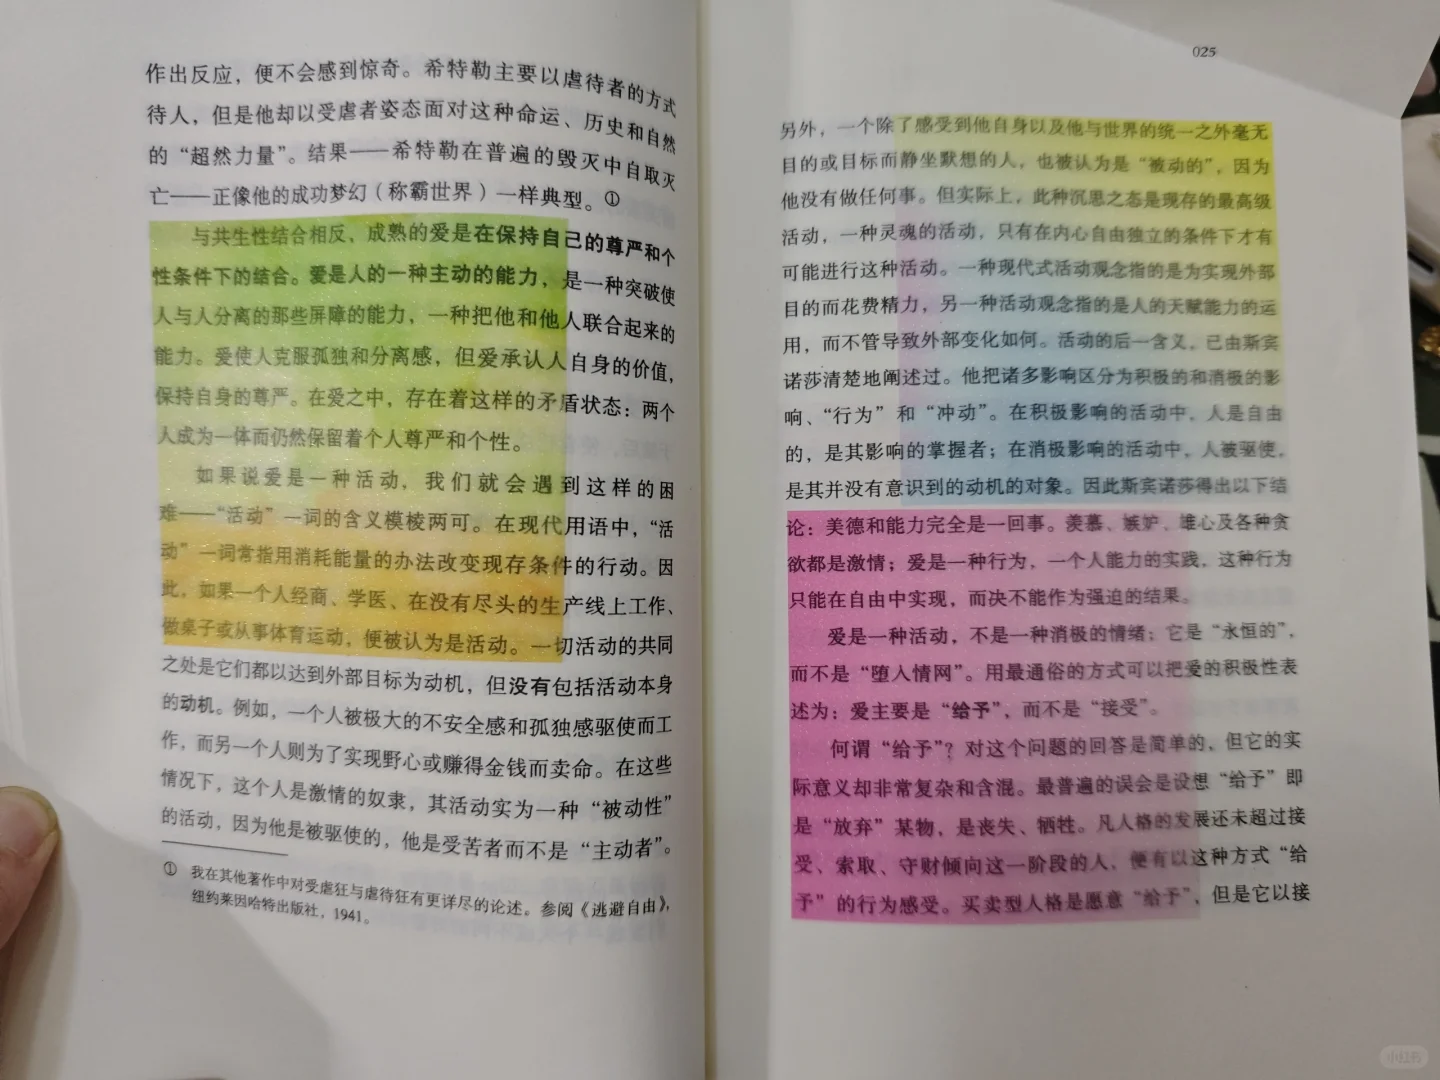 作出反应，便不会感到惊奇。希特勒主要以虐待者的方式
待人，但是他却以受虐者姿态面对这种命运、历史和自然
的“超然力量”。结果——希特勒在普遍的毁灭中自取灭
亡——正像他的成功梦幻（称霸世界）一样典型。①
与共生性结合相反，成熟的爱是在保持自己的尊严和个
性条件下的结合。爱是人的一种主动的能力，是一种突破使
人与人分离的那些屏障的能力，一种把他和他人联合起来的
能力。爱使人克服孤独和分离感，但爱承认人自身的价值，
保持自身的尊严。在爱之中，存在着这样的矛盾状态：两个
人成为一体而仍然保留着个人尊严和个性。
如果说爱是一种活动，我们就会遇到这样的困
难——“活动”一词的含义模棱两可。在现代用语中，“活
动”一词常指用消耗能量的办法改变现存条件的行动。因
此，如果一个人经商、学医、在没有尽头的生产线上工作、
做桌子或从事体育运动，便被认为是活动。一切活动的共同
之处是它们都以达到外部目标为动机，但没有包括活动本身
的动机。例如，一个人被极大的不安全感和孤独感驱使而工
作，而另一个人则为了实现野心或赚得金钱而卖命。在这些
情况下，这个人是激情的奴隶，其活动实为一种“被动性”
的活动，因为他是被驱使的，他是受苦者而不是“主动者”。
① 我在其他著作中对受虐狂与虐待狂有更详尽的论述。参阅《逃避自由》，
纽约莱因哈特出版社，1941。
025
另外，一个除了感受到他自身以及他与世界的统一之外毫无
目的或目标而静坐默想的人，也被认为是“被动的”，因为
他没有做任何事。但实际上，此种沉思之态是现存的最高级
活动，一种灵魂的活动，只有在内心自由独立的条件下才有
可能进行这种活动。一种现代式活动观念指的是为实现外部
目的而花费精力，另一种活动观念指的是人的天赋能力的运
用，而不管导致外部变化如何。活动的后一含义，已由斯宾
诺莎清楚地阐述过。他把诸多影响区分为积极的和消极的影
响、“行为”和“冲动”。在积极影响的活动中，人是自由
的，是其影响的掌握者；在消极影响的活动中，人被驱使，
是其并没有意识到的动机的对象。因此斯宾诺莎得出以下结
论：美德和能力完全是一回事。羡慕、嫉妒、雄心及各种贪
欲都是激情；爱是一种行为，一个人能力的实践，这种行为
只能在自由中实现，而决不能作为强迫的结果。
爱是一种活动，不是一种消极的情绪；它是“永恒的”，
而不是“堕入情网”。用最通俗的方式可以把爱的积极性表
述为：爱主要是“给予”，而不是“接受”。
何谓“给予”？对这个问题的回答是简单的，但它的实
际意义却非常复杂和含混。最普遍的误会是设想“给予”即
是“放弃”某物，是丧失、牺牲。凡人格的发展还未超过接
受、索取、守财倾向这一阶段的人，便有以这种方式“给
予”的行为感受。买卖型人格是愿意“给予”，但是它以接
小红书